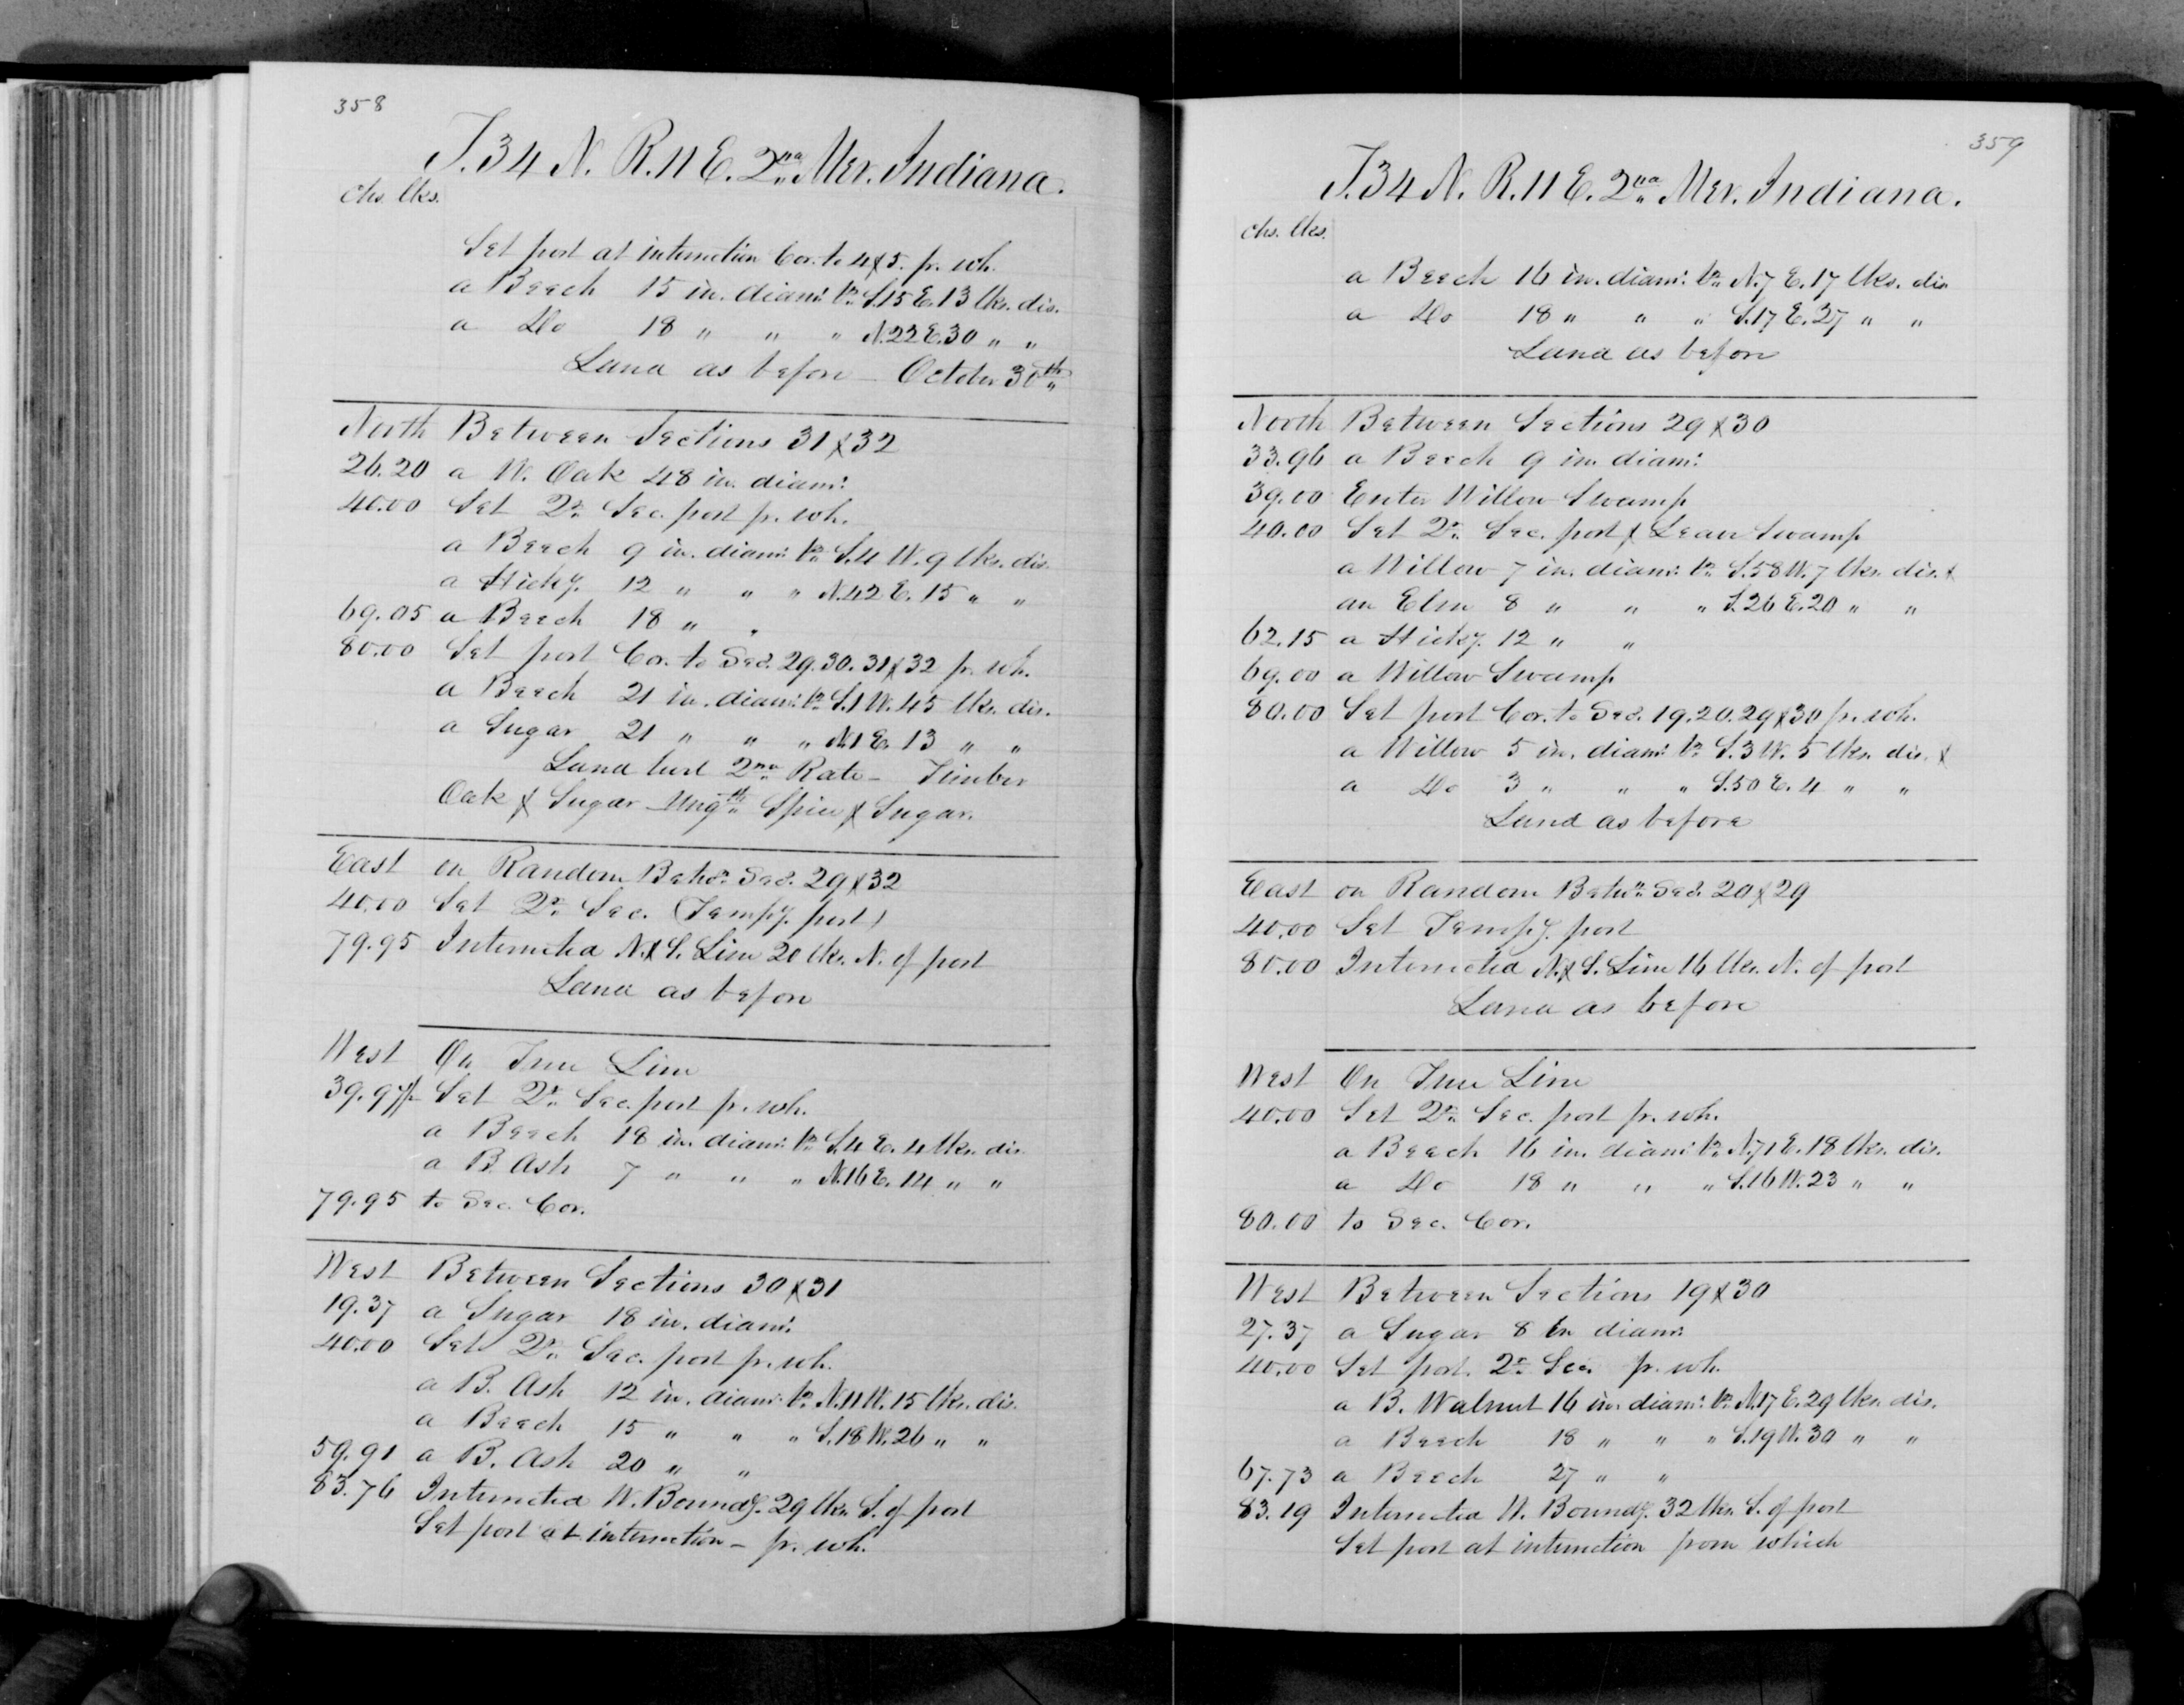 358
T. 34 N. R. 11 E. 2nd Mer. Indiana.
chs. lks.
Set post at intersection Cor. to 4 & 5. fr. wh.
a Beech 15 in. diam: br. S. 15 E. 13 lks. dis.
a do 18 " " " N. 22 E. 30 " "
Land as before - October 30th
North Between Sections 31 & 32
26.20 a W. Oak 48 in. diam:
40.00 Set Qr. Sec. post fr. wh.
a Beech 9 in. diam: br. S. 4 W. 9 lks. dis.
a Hicky. 12 " " " N. 42 E. 15 " "
69.05 a Beech 18 " "
80.00 Set post Cor. to Secs. 29. 30. 31 & 32 fr. wh.
a Beech 21 in. diam: br. S. 1 W. 45 lks. dis.
a Sugar 21 " " " N. 1 E. 13 " "
Land level 2nd Rate - Timber
Oak & Sugar - Ungth Spice & Sugar.
East on Random Betwn. Secs. 29 & 32
40.00 Set Qr. Sec. (Tempy. post)
79.95 Intersected N. & S. Line 20 lks. N. of post
Land as before
West On True Line
39.97½ Set Qr. Sec. post fr. wh.
a Beech 18 in. diam: br. S. 4 E. 4 lks. dis.
a B. Ash 7 " " " N. 16 E. 14 " "
79.95 to Sec. Cor.
West Between Sections 30 & 31
19.37 a Sugar 18 in. diam:
40.00 Set Qr. Sec. post fr. wh.
a B. Ash 12 in. diam: br. N. 11 W. 15 lks. dis.
a Beech 15 " " " S. 18 W. 26 " "
59.91 a B. Ash 20 " "
83.76 Intersected W. Boundy. 29 lks. S. of post
Set post at intersection - fr. wh.
359
T. 34 N. R. 11 E. 2nd Mer. Indiana.
chs. lks.
a Beech 16 in. diam: br. N. 7 E. 17 lks. dis
a do 18 " " " S. 17 E. 27 " "
Land as before
North Between Sections 29 & 30
33.96 a Beech 9 in. diam:
39.00 Enter Willow Swamp
40.00 Set Qr. Sec. post & Leave Swamp
a Willow 7 in. diam: br. S. 58 W. 7 lks. dis. &
an Elm 8 " " " S. 26 E. 20 " "
62.15 a Hicky. 12 " "
69.00 a Willow Swamp
80.00 Set post Cor. to Secs. 19. 20. 29 & 30 fr. wh.
a Willow 5 in. diam: br. S. 3 W. 5 lks. dis. &
a do 3 " " " S. 50 E. 4 " "
Land as before
East on Random Betwn. Secs. 20 & 29
40.00 Set Tempy. post
80.00 Intersected N. & S. Line 16 lks. N. of post
Land as before
West On True Line
40.00 Set Qr. Sec. post fr. wh.
a Beech 16 in. diam: br. N. 71 E. 18 lks. dis.
a do 18 " " " S. 16 W. 23 " "
80.00 to Sec. Cor.
West Between Sections 19 & 30
27.37 a Sugar 8 in diam:
40.00 Set post. Qr. Sec. fr. wh.
a B. Walnut 16 in. diam: br. N. 17 E. 29 lks. dis.
a Beech 18 " " " S. 19 W. 30 " "
67.73 a Beech 27 " "
83.19 Intersected W. Boundy. 32 lks. S. of post
Set post at intersection from which